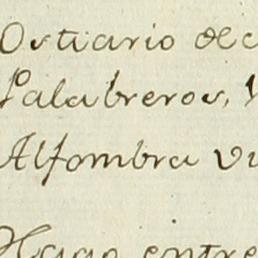 Ostiario de
Palabreros,
Alfombra
Hago entre